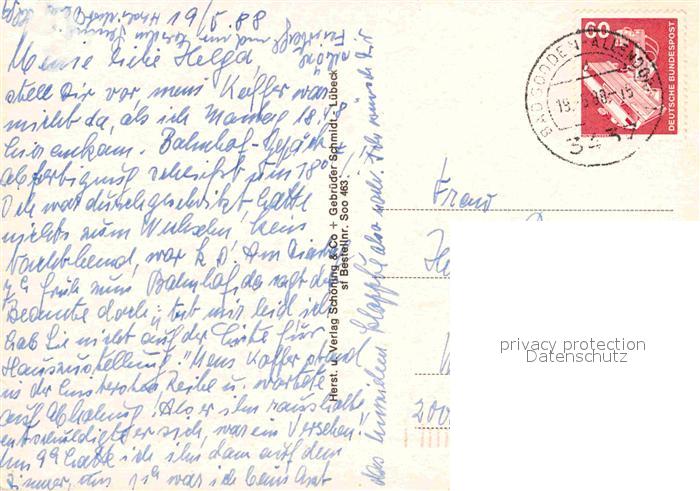 19/5.88
Meine liebe Helga,
stell Dir vor, mein Koffer war
nicht da, als ich Montag 18.30
hier ankam. Bahnhof-Gepäck
abfertigung schließt um 18°°.
Ich war durchgeschwitzt, hatte
nichts zum Wechseln, kein
Nachthemd, war k.o. Am Dienstag
7°° früh zum Bahnhof, da sagt der
Beamte doch: "tut mir leid ich
hab Sie nicht auf der Liste für
Hauszustellung." Mein Koffer stand
in der hintersten Reihe u. wartete
auf Abholung. Als er ihn rausholte
entschuldigte er sich, war ein Versehen!
Um 9°° hatte ich ihn dann auf dem
Zimmer, um ich war ich beim Arzt
das hinein klappte also
Ich wünsche Dir
alles
Herst. u. Verlag Schöning & Co + Gebrüder Schmidt - Lübeck
sf Bestellnr. Soo 463
60
DEUTSCHE BUNDESPOST
BAD SOODEN-ALLENDORF
19.-5.88-15
3437
Frau
He
200
privacy protection
Datenschutz